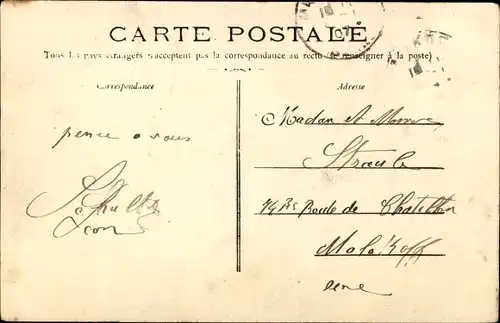 CARTE POSTALE
Tous les pays étrangers n'acceptent pas la correspondance au recto (se renseigner à la poste)
Correspondance
Adresse
pense a vous
Schultz
Leon
Madan et
Straule
74 Bis Route de Chatillon
Malakoff